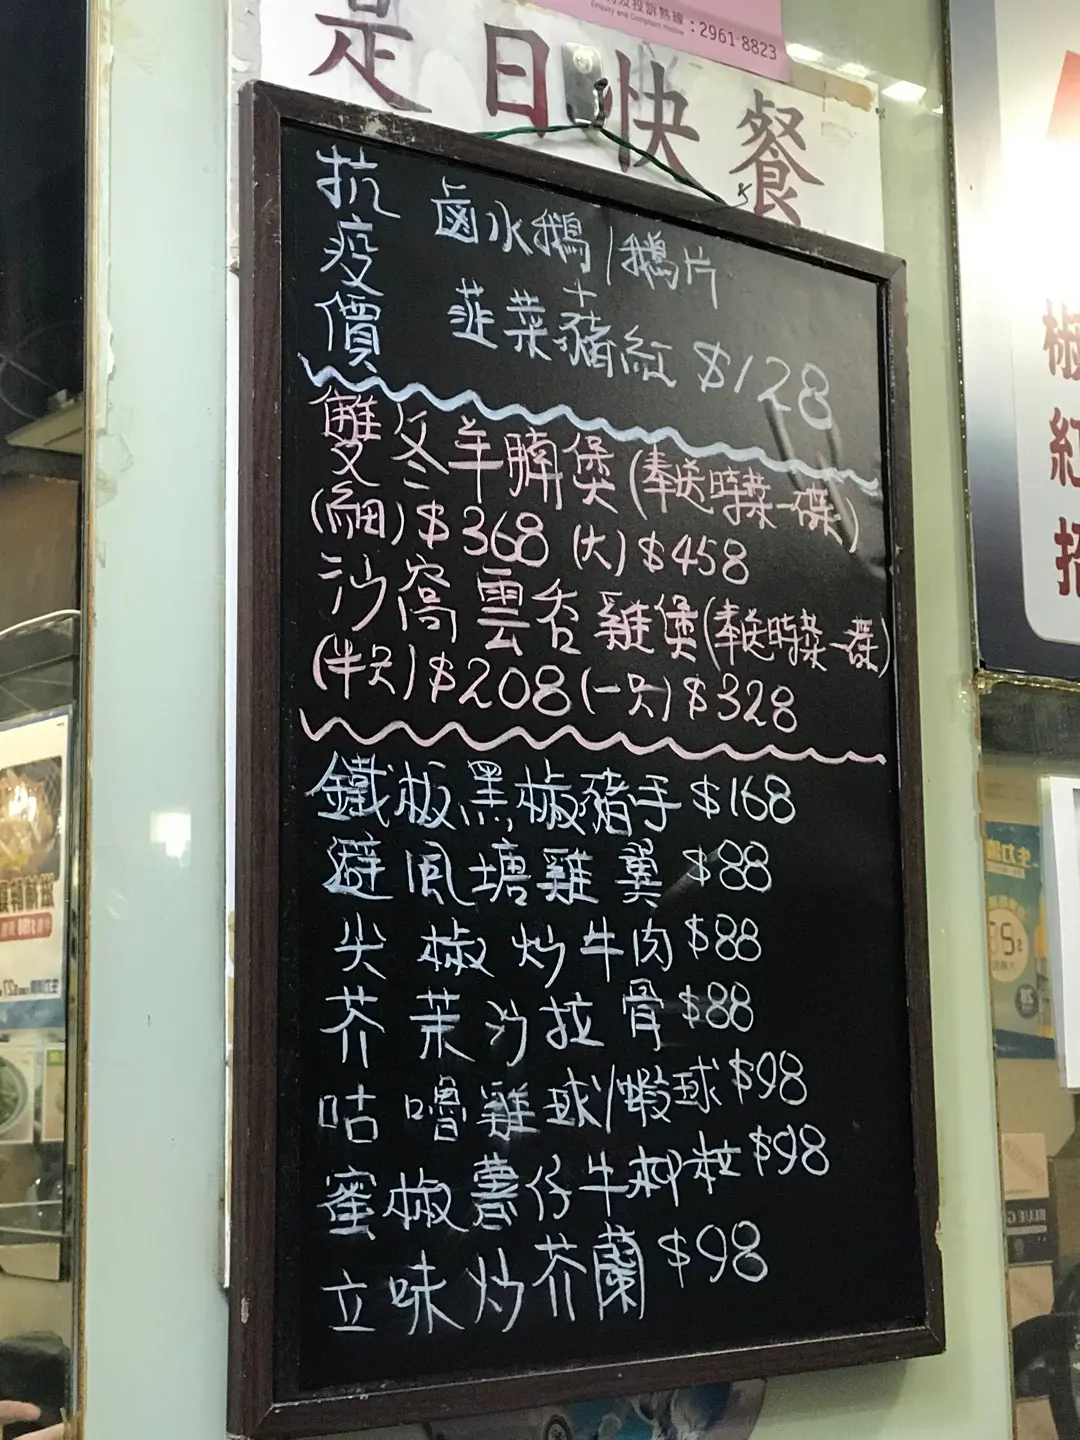 及投訴熱線：2961 8823
Enquiry and Complaint Hotline
是日快餐
抗疫價
鹵水鵝/鵝片
+
韮菜豬紅 $128
雙冬羊腩煲(奉送時菜一碟)
(細)$368 (大)$458
沙窩雲吞雞煲(奉送時菜一碟)
(半只)$208(一只)$328
鐵板黑椒豬手$168
避風塘雞翼 $88
尖椒炒牛肉$88
芥茉沙拉骨$88
咕嚕雞球/蝦球$98
蜜椒薯仔牛柳粒$98
立味炒芥蘭$98
椒
紅
招